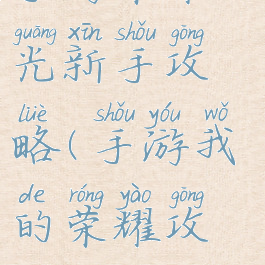 guāng xīn shǒu gōng
光新手攻
lüè shǒu yóu wǒ
略(手游我
de róng yào gōng
的荣耀攻